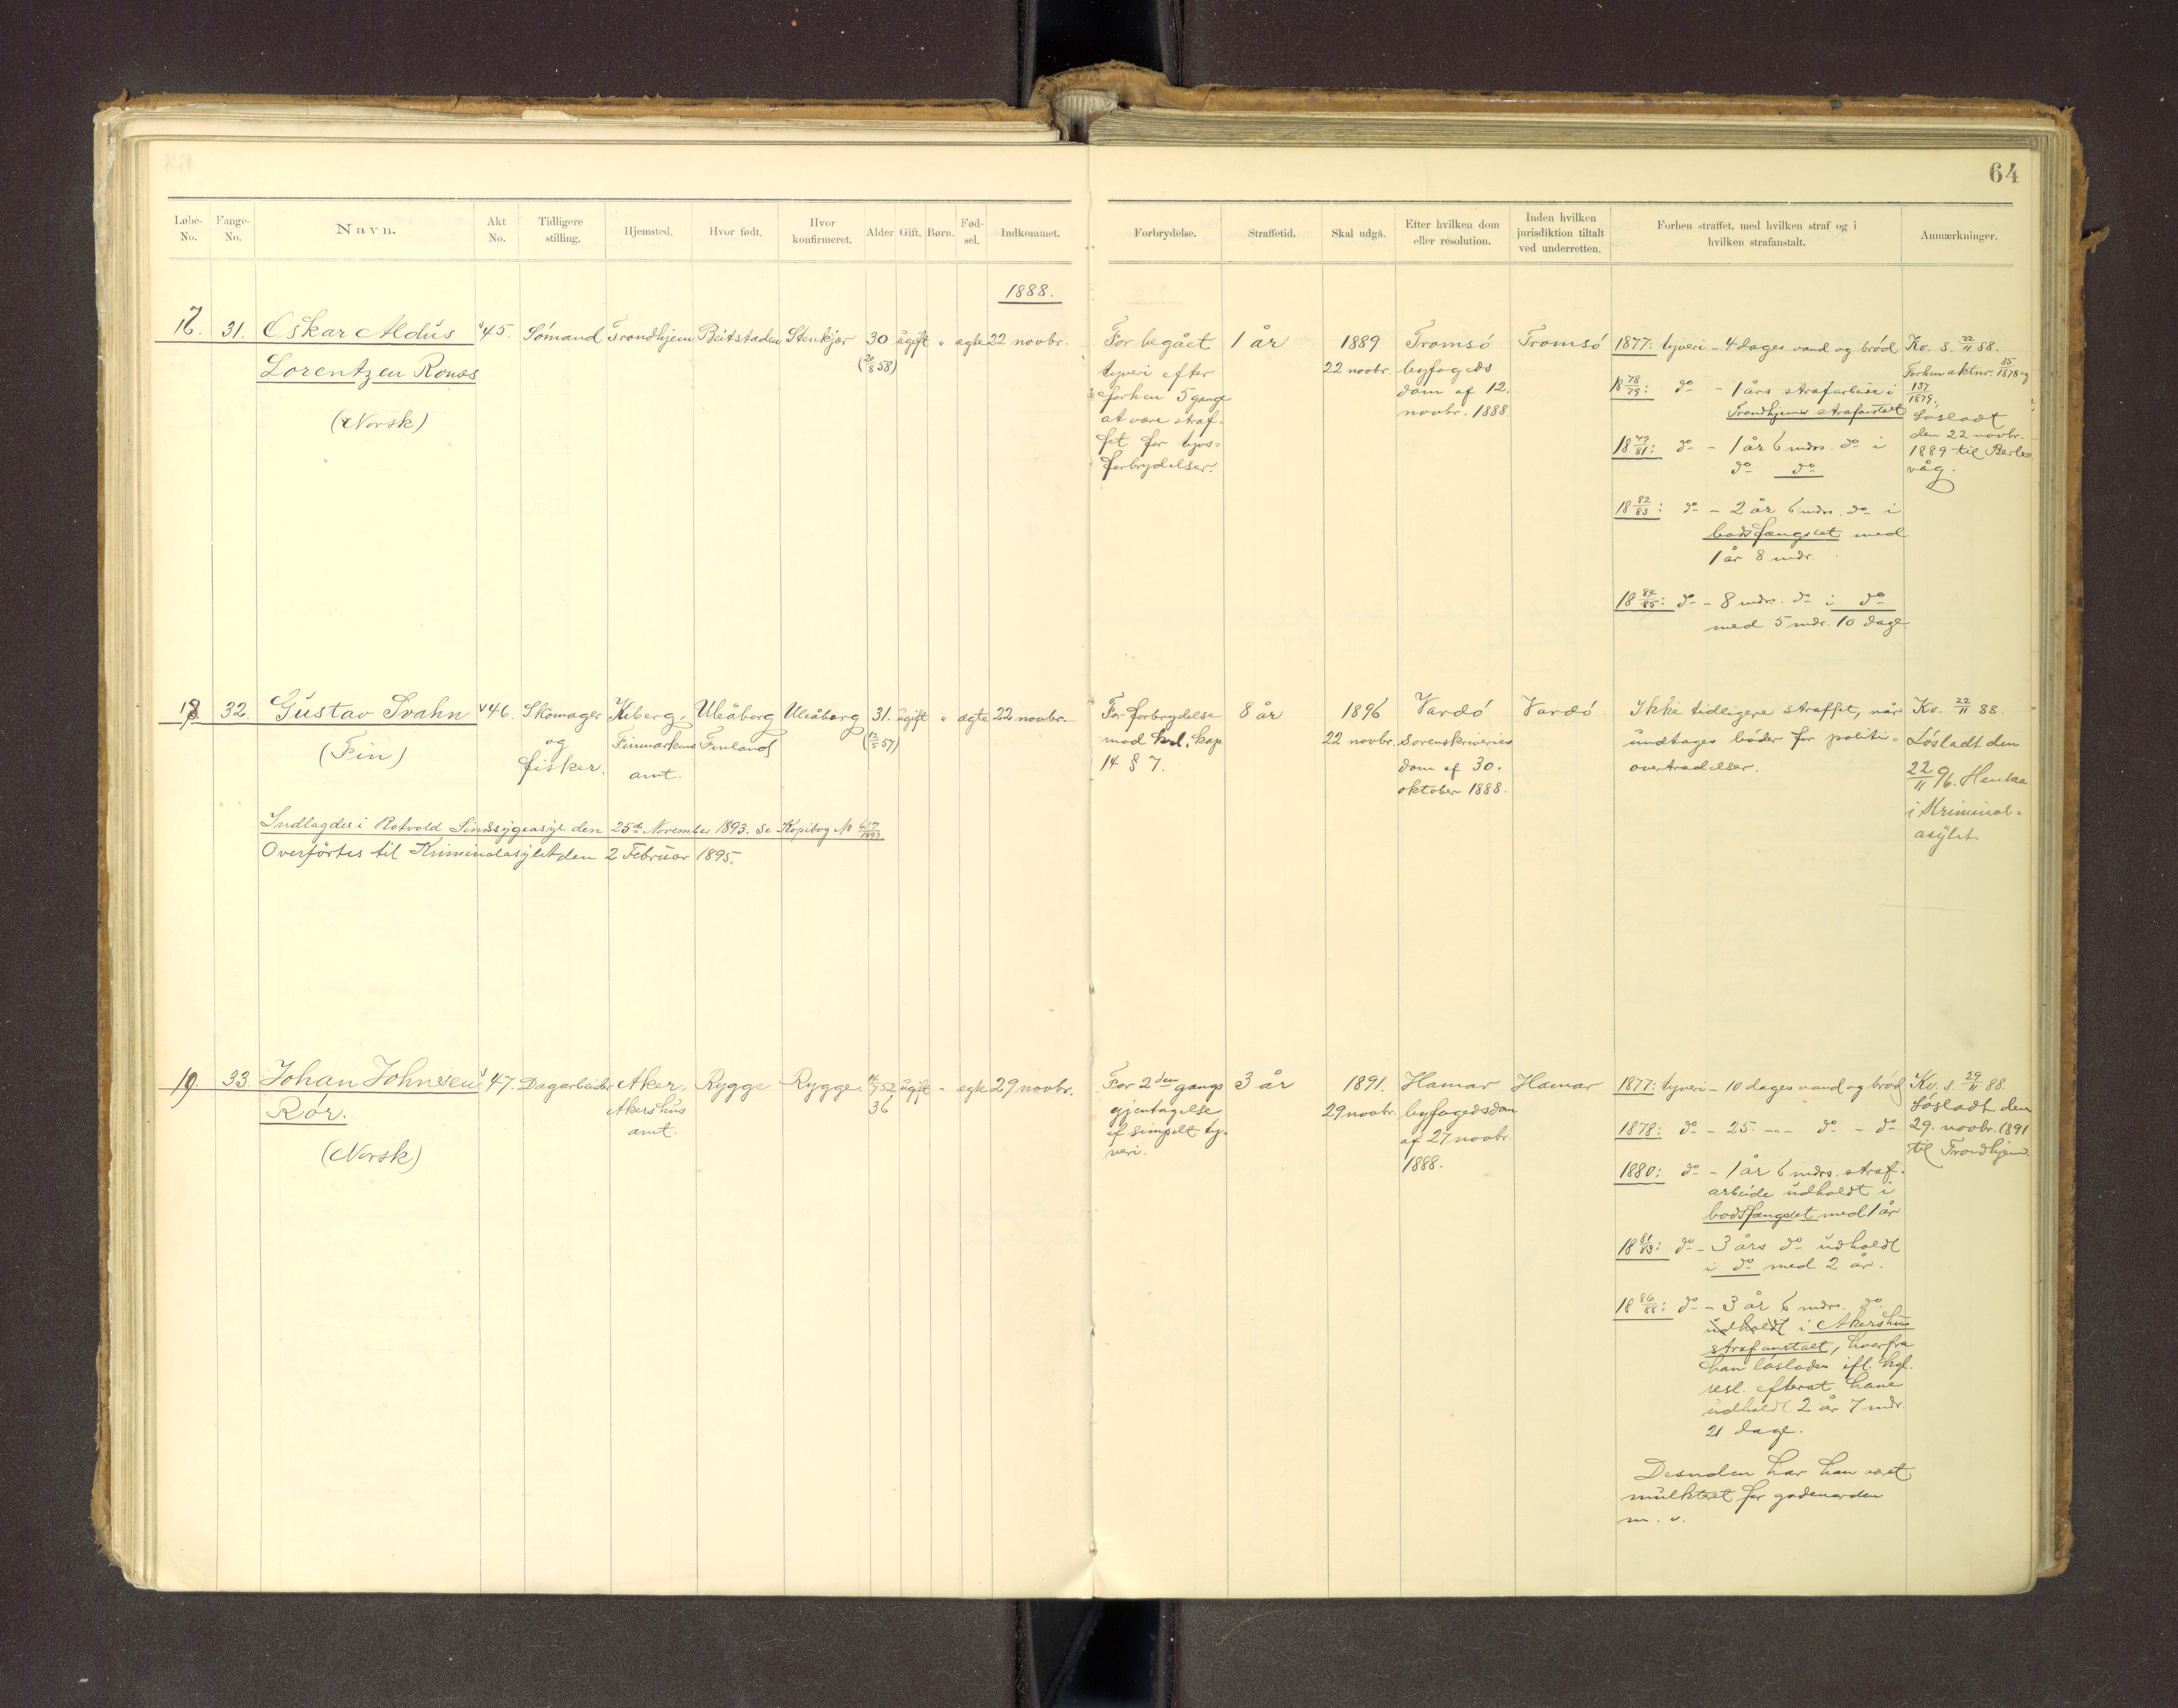 64
Løbe-No. Fange-No. Navn. Akt No. Tidligere stilling. Hjemsted. Hvor født. Hvor konfirmeret. Alder Gift. Børn. Fød-sel. Indkommet. Forbrydelse. Straffetid. Skal udgå. Efter hvilken dom eller resolution. Inden hvilken jurisdiktion tiltalt ved underretten. Forhen straffet, med hvilken straf og i hvilken strafanstalt. Anmærkninger.
1888.
17. 31. Oskar Aldus 45. Sømand Trondhjem Beitstaden Stenkjær 30 ugift " ægte 22 novbr.
(20/8 58)
Lorentzen Ronæs
(Norsk)
For begået
tyveri efter
forhen 5 gange
at være straf-
fet for tyvs-
forbrydelser.
1 år
1889
22 novbr.
Tromsø
byfogeds
dom af 12.
novbr. 1888.
Tromsø
1877: tyveri - 4 dages vand og brød
18 78/79: do - 1 års strafarbeide i
Trondhjems strafanstalt
18 79/81: do - 1 år 6 mdrs. do i
do do
18 82/83: do - 2 år 6 mdrs. do i
bodsfængslet med
1 år 8 mdr.
18 84/85: do - 8 mdrs. do i do
med 5 mdr. 10 dage
Kv. s. 22/11 88.
Forhen aktnr. 35/1878 og
137/1879.
Løsladt
den 22 novbr.
1889 til Berle-
våg.
18. 32. Gustav Svahn 46. Skomager Kiberg, Uleåborg Uleåborg 31. ugift " ægte 22 novbr.
og Finmarkens Finland (12/5 57)
fisker. amt.
(Fin)
Indlagdes i Rotvold Sindssygeasyl den 25de November 1893. Se Kopibog No 617/1893
Overførtes til Kriminalasylet den 2 Februar 1895.
For forbrydelse
mod krl. kap
14 § 7.
8 år
1896
22 novbr.
Vardø
sorenskriveries
dom af 30.
oktober 1888.
Vardø
Ikke tidligere straffet, når
undtages bøder for politi-
overtrædelser.
Kv. 22/11 88.
Løsladt den
22/11 96. Hensaa
i Kriminal-
asylet
19. 33. Johan Johnsen 47. Dagarbeider Aker, Rygge Rygge. 52 ugift " ægte 29 novbr.
Akershus 36
amt.
Rør.
(Norsk)
For 2den gangs
gjentagelse
af simpelt ty-
veri.
3 år
1891.
29 novbr.
Hamar
byfogeds dom
af 27 novbr.
1888.
Hamar
1877: tyveri - 10 dages vand og brød
1878: do - 25 -"- do - do
1880: do - 1 år 6 mdrs. straf-
arbeide udholdt i
bodsfængslet med 1 år
18 81/83: do - 3 års do udholdt
i do med 2 år.
18 86/88: do - 3 år 6 mdrs. do
udholdt i Akershus
strafanstalt, hvorfra
han løslades ifl. kgl.
resl. efterat have
udholdt 2 år 7 mdr.
21 dage.
Desuden har han været
mulkteret for gadeuorden
m. v.
Kv. s. 29/11 88.
Løsladt den
29. novbr. 1891
til Trondhjem.